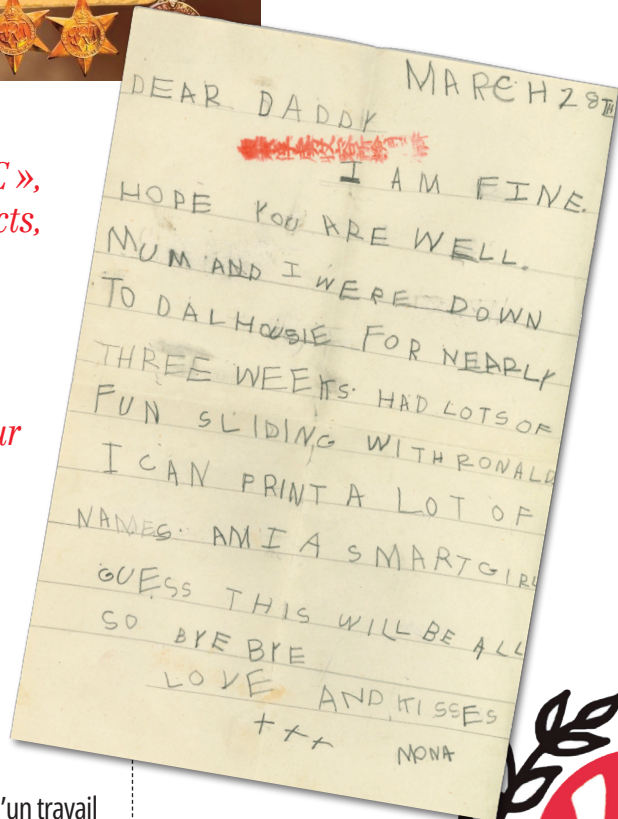 C »,
cts,
ur
MARCH 28TH
DEAR DADDY
I AM FINE.
HOPE YOU ARE WELL.
MUM AND I WERE DOWN
TO DALHOUSIE FOR NEARLY
THREE WEEKS. HAD LOTS OF
FUN SLIDING WITH RONALD
I CAN PRINT A LOT OF
NAMES. AM I A SMART GIRL
GUESS THIS WILL BE ALL
SO BYE BYE
LOVE AND KISSES
+++ MONA
'un travail